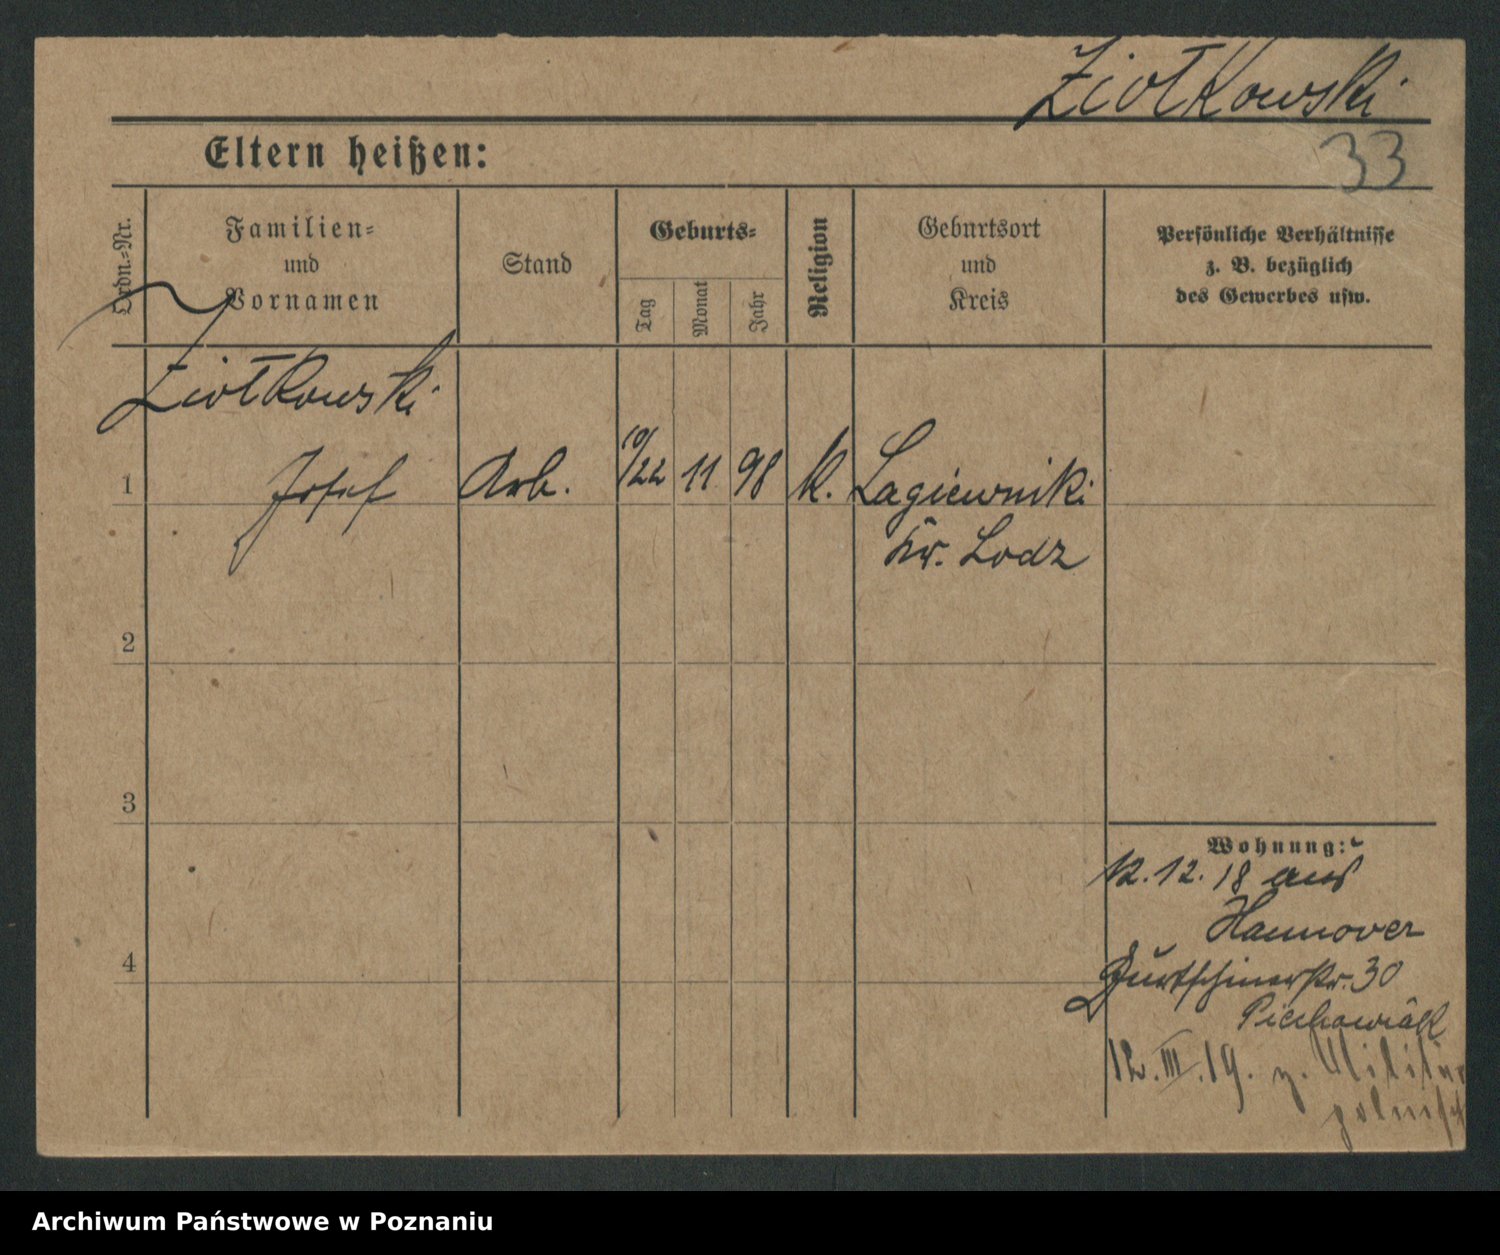 Ziołkowski
33
Eltern heißen:
Ordn.-Nr.
Familien-
und
Vornamen
Stand
Geburts-
Tag
Monat
Jahr
Religion
Geburtsort
und
Kreis
Persönliche Verhältnisse
z. B. bezüglich
des Gewerbes usw.
Ziołkowski
1 Josef Arb. 10/22 11 98 k. Lagiewniki
Kr. Lodz
2
3
4
Wohnung:
12.12.18 aus
Hannover
30
Piechowiak
12.III.19. z. Militär
polnisch
Archiwum Państwowe w Poznaniu